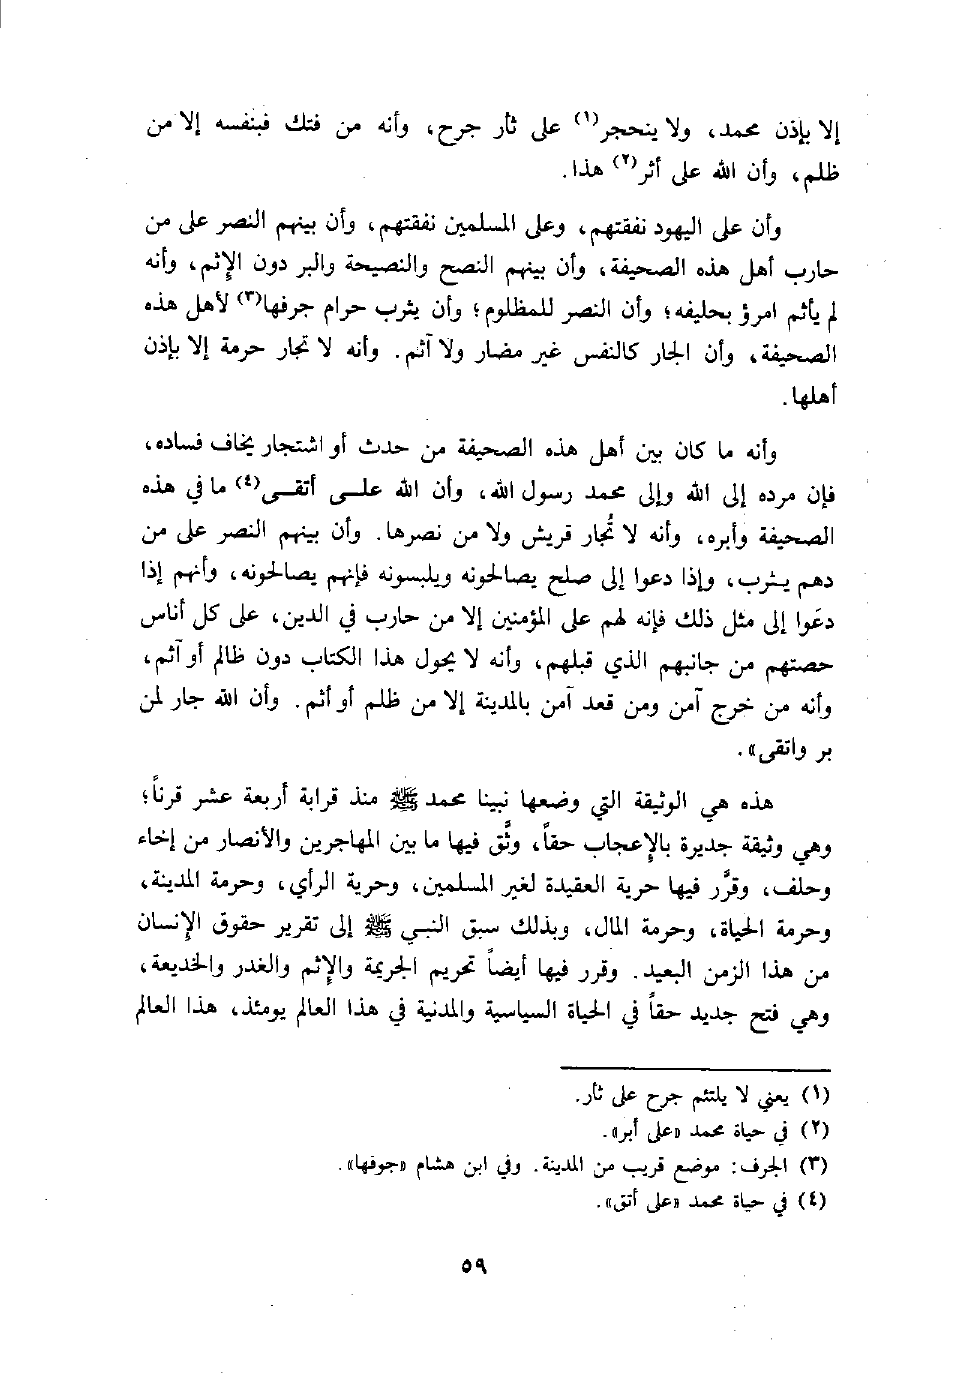 إلا بإذن محمد، ولا ينحجر(١) على ثار جرح، وأنه من فتك فبنفسه إلا من
ظلم، وأن الله على أثر(٢) هذا.
وأن على اليهود نفقتهم، وعلى المسلمين نفقتهم، وأن بينهم النصر على من
حارب أهل هذه الصحيفة، وأن بينهم النصح والنصيحة والبر دون الإثم، وأنه
لم يأثم امرؤ بحليفه؛ وأن النصر للمظلوم؛ وأن يثرب حرام جرفها(٣) لأهل هذه
الصحيفة، وأن الجار كالنفس غير مضار ولا آثم. وأنه لا تجار حرمة إلا بإذن
أهلها.
وأنه ما كان بين أهل هذه الصحيفة من حدث أو اشتجار يخاف فساده،
فإن مرده إلى الله وإلى محمد رسول الله، وأن الله على أتقى(٤) ما في هذه
الصحيفة وأبره، وأنه لا تُجار قريش ولا من نصرها. وأن بينهم النصر على من
دهم يثرب، وإذا دعوا إلى صلح يصالحونه ويلبسونه فإنهم يصالحونه، وأنهم إذا
دعَوا إلى مثل ذلك فإنه لهم على المؤمنين إلا من حارب في الدين، على كل أناس
حصتهم من جانبهم الذي قبلهم، وأنه لا يحول هذا الكتاب دون ظالم أو آثم،
وأنه من خرج آمن ومن قعد آمن بالمدينة إلا من ظلم أو أثم. وأن الله جار لمن
بر واتقى».
هذه هي الوثيقة التي وضعها نبينا محمد ﷺ منذ قرابة أربعة عشر قرناً؛
وهي وثيقة جديرة بالإعجاب حقاً، وثَّق فيها ما بين المهاجرين والأنصار من إخاء
وحلف، وقرَّر فيها حرية العقيدة لغير المسلمين، وحرية الرأي، وحرمة المدينة،
وحرمة الحياة، وحرمة المال، وبذلك سبق النبي ﷺ إلى تقرير حقوق الإنسان
من هذا الزمن البعيد. وقرر فيها أيضاً تحريم الجريمة والإثم والغدر والخديعة،
وهي فتح جديد حقاً في الحياة السياسية والمدنية في هذا العالم يومئذ، هذا العالم
(١) يعني لا يلتئم جرح على ثار.
(٢) في حياة محمد «على أبر».
(٣) الجرف: موضع قريب من المدينة. وفي ابن هشام «جوفها».
(٤) في حياة محمد «على أتق».
٥٩